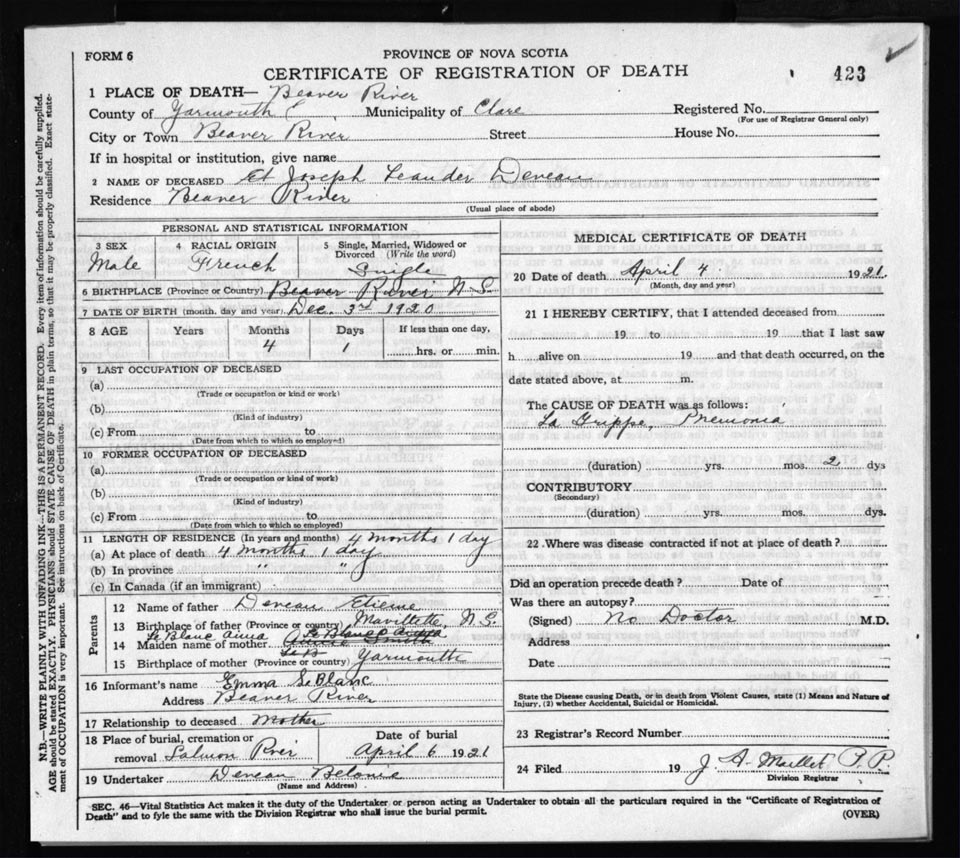 FORM 6
PROVINCE OF NOVA SCOTIA
CERTIFICATE OF REGISTRATION OF DEATH
423
1 PLACE OF DEATH— Beaver River
County of Yarmouth Municipality of Clare Registered No.
(For use of Registrar General only)
City or Town Beaver River Street House No.
If in hospital or institution, give name
2 NAME OF DECEASED Joseph Leander Deveau
Residence Beaver River
(Usual place of abode)
PERSONAL AND STATISTICAL INFORMATION
3 SEX 4 RACIAL ORIGIN 5 Single, Married, Widowed or
Divorced (Write the word)
Male French Single
6 BIRTHPLACE (Province or Country) Beaver River N.S.
7 DATE OF BIRTH (month, day and year) Dec. 3rd 1920
8 AGE Years Months Days If less than one day,
4 1 hrs. or min.
9 LAST OCCUPATION OF DECEASED
(a)
(Trade or occupation or kind or work)
(b)
(Kind of industry)
(c) From to
(Date from which to which so employed)
10 FORMER OCCUPATION OF DECEASED
(a)
(Trade or occupation or kind of work)
(b)
(Kind of industry)
(c) From to
(Date from which to which so employed)
11 LENGTH OF RESIDENCE (In years and months) 4 months 1 day
(a) At place of death 4 months 1 day
(b) In province " "
(c) In Canada (if an immigrant)
Parents
12 Name of father Deveau Etienne
13 Birthplace of father (Province or country) Mavillette, N.S.
Le Blanc Anna
14 Maiden name of mother
15 Birthplace of mother (Province or country) Yarmouth
16 Informant's name Emma LeBlanc
Address Beaver River
17 Relationship to deceased Mother
18 Place of burial, cremation or Date of burial
removal Salmon River April 6 1921
19 Undertaker Deveau Belonie
(Name and Address)
MEDICAL CERTIFICATE OF DEATH
20 Date of death April 4 1921
(Month, day and year)
21 I HEREBY CERTIFY, that I attended deceased from
19 to 19 that I last saw
h alive on 19 and that death occurred, on the
date stated above, at m.
The CAUSE OF DEATH was as follows:
La Grippe, Pnemonia
(duration) yrs. mos. 2 dys
CONTRIBUTORY
(Secondary)
(duration) yrs. mos. dys.
22 Where was disease contracted if not at place of death?
Did an operation precede death? Date of
Was there an autopsy?
(Signed) No Doctor M.D.
Address
Date
State the Disease causing Death, or in death from Violent Causes, state (1) Means and Nature of
Injury, (2) whether Accidental, Suicidal or Homicidal.
23 Registrar's Record Number
24 Filed 19 J. A. P.P.
Division Registrar
SEC. 46—Vital Statistics Act makes it the duty of the Undertaker or person acting as Undertaker to obtain all the particulars required in the "Certificate of Registration of
Death" and to fyle the same with the Division Registrar who shall issue the burial permit. (OVER)
N.B.—WRITE PLAINLY WITH UNFADING INK—THIS IS A PERMANENT RECORD. Every item of information should be carefully supplied.
AGE should be stated EXACTLY. PHYSICIANS should STATE CAUSE OF DEATH in plain terms, so that it may be properly classified. Exact state-
ment of OCCUPATION is very important. See instructions on back of Certificate.